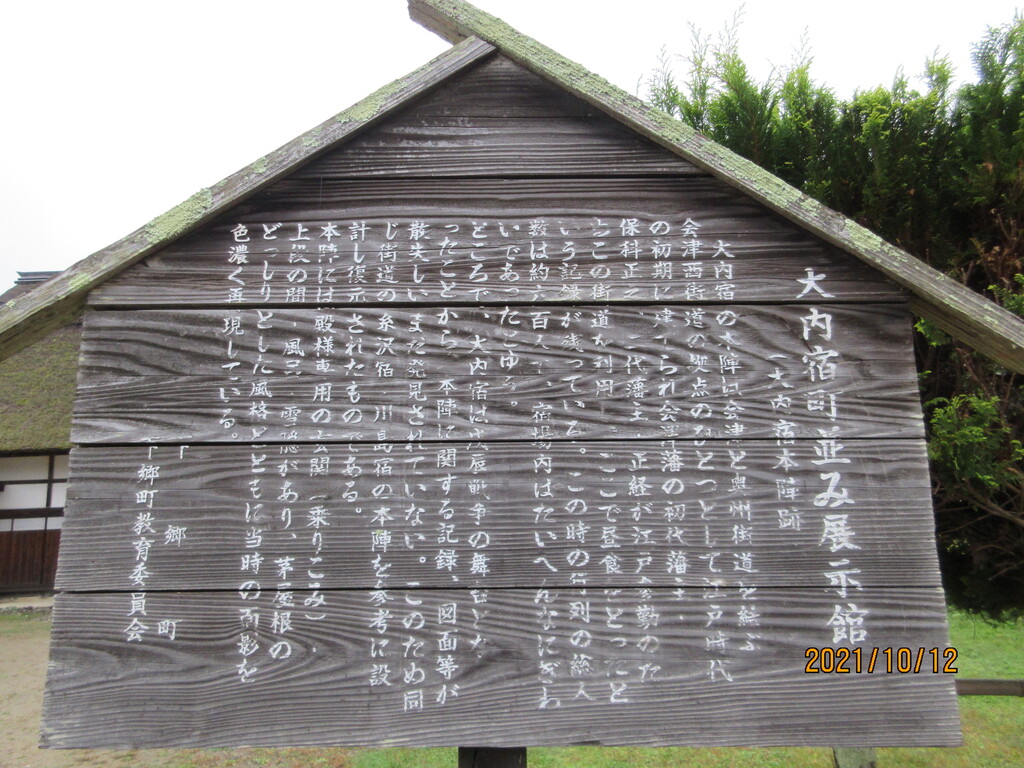 大内宿町並み展示館
(大内宿本陣跡
大内宿の本陣は会津と奥州街道を結ぶ
会津西街道の拠点のひとつとして江戸時代
の初期に建てられ会津藩の初代藩主・
保科正之、二代藩主・正経が江戸参勤のた
めこの街道を利用、ここで昼食をとったと
いう記録が残っている。この時の行列の総人
数は約六百人で、宿場内はたいへんなにぎわ
いであったという。
ところで、大内宿は戊辰戦争の舞台とな
ったことから、本陣に関する記録、図面等が
散失しいまだ発見されていない。このため同
じ街道の糸沢宿・川島宿の本陣を参考に設
計し復元されたものである。
本陣には殿様専用の玄関(乗りこみ)・
上段の間・風呂・雪隠があり、茅屋根の
どっしりとした風格とともに当時の面影を
色濃く再現している。
下郷町
下郷町教育委員会
2021/10/12